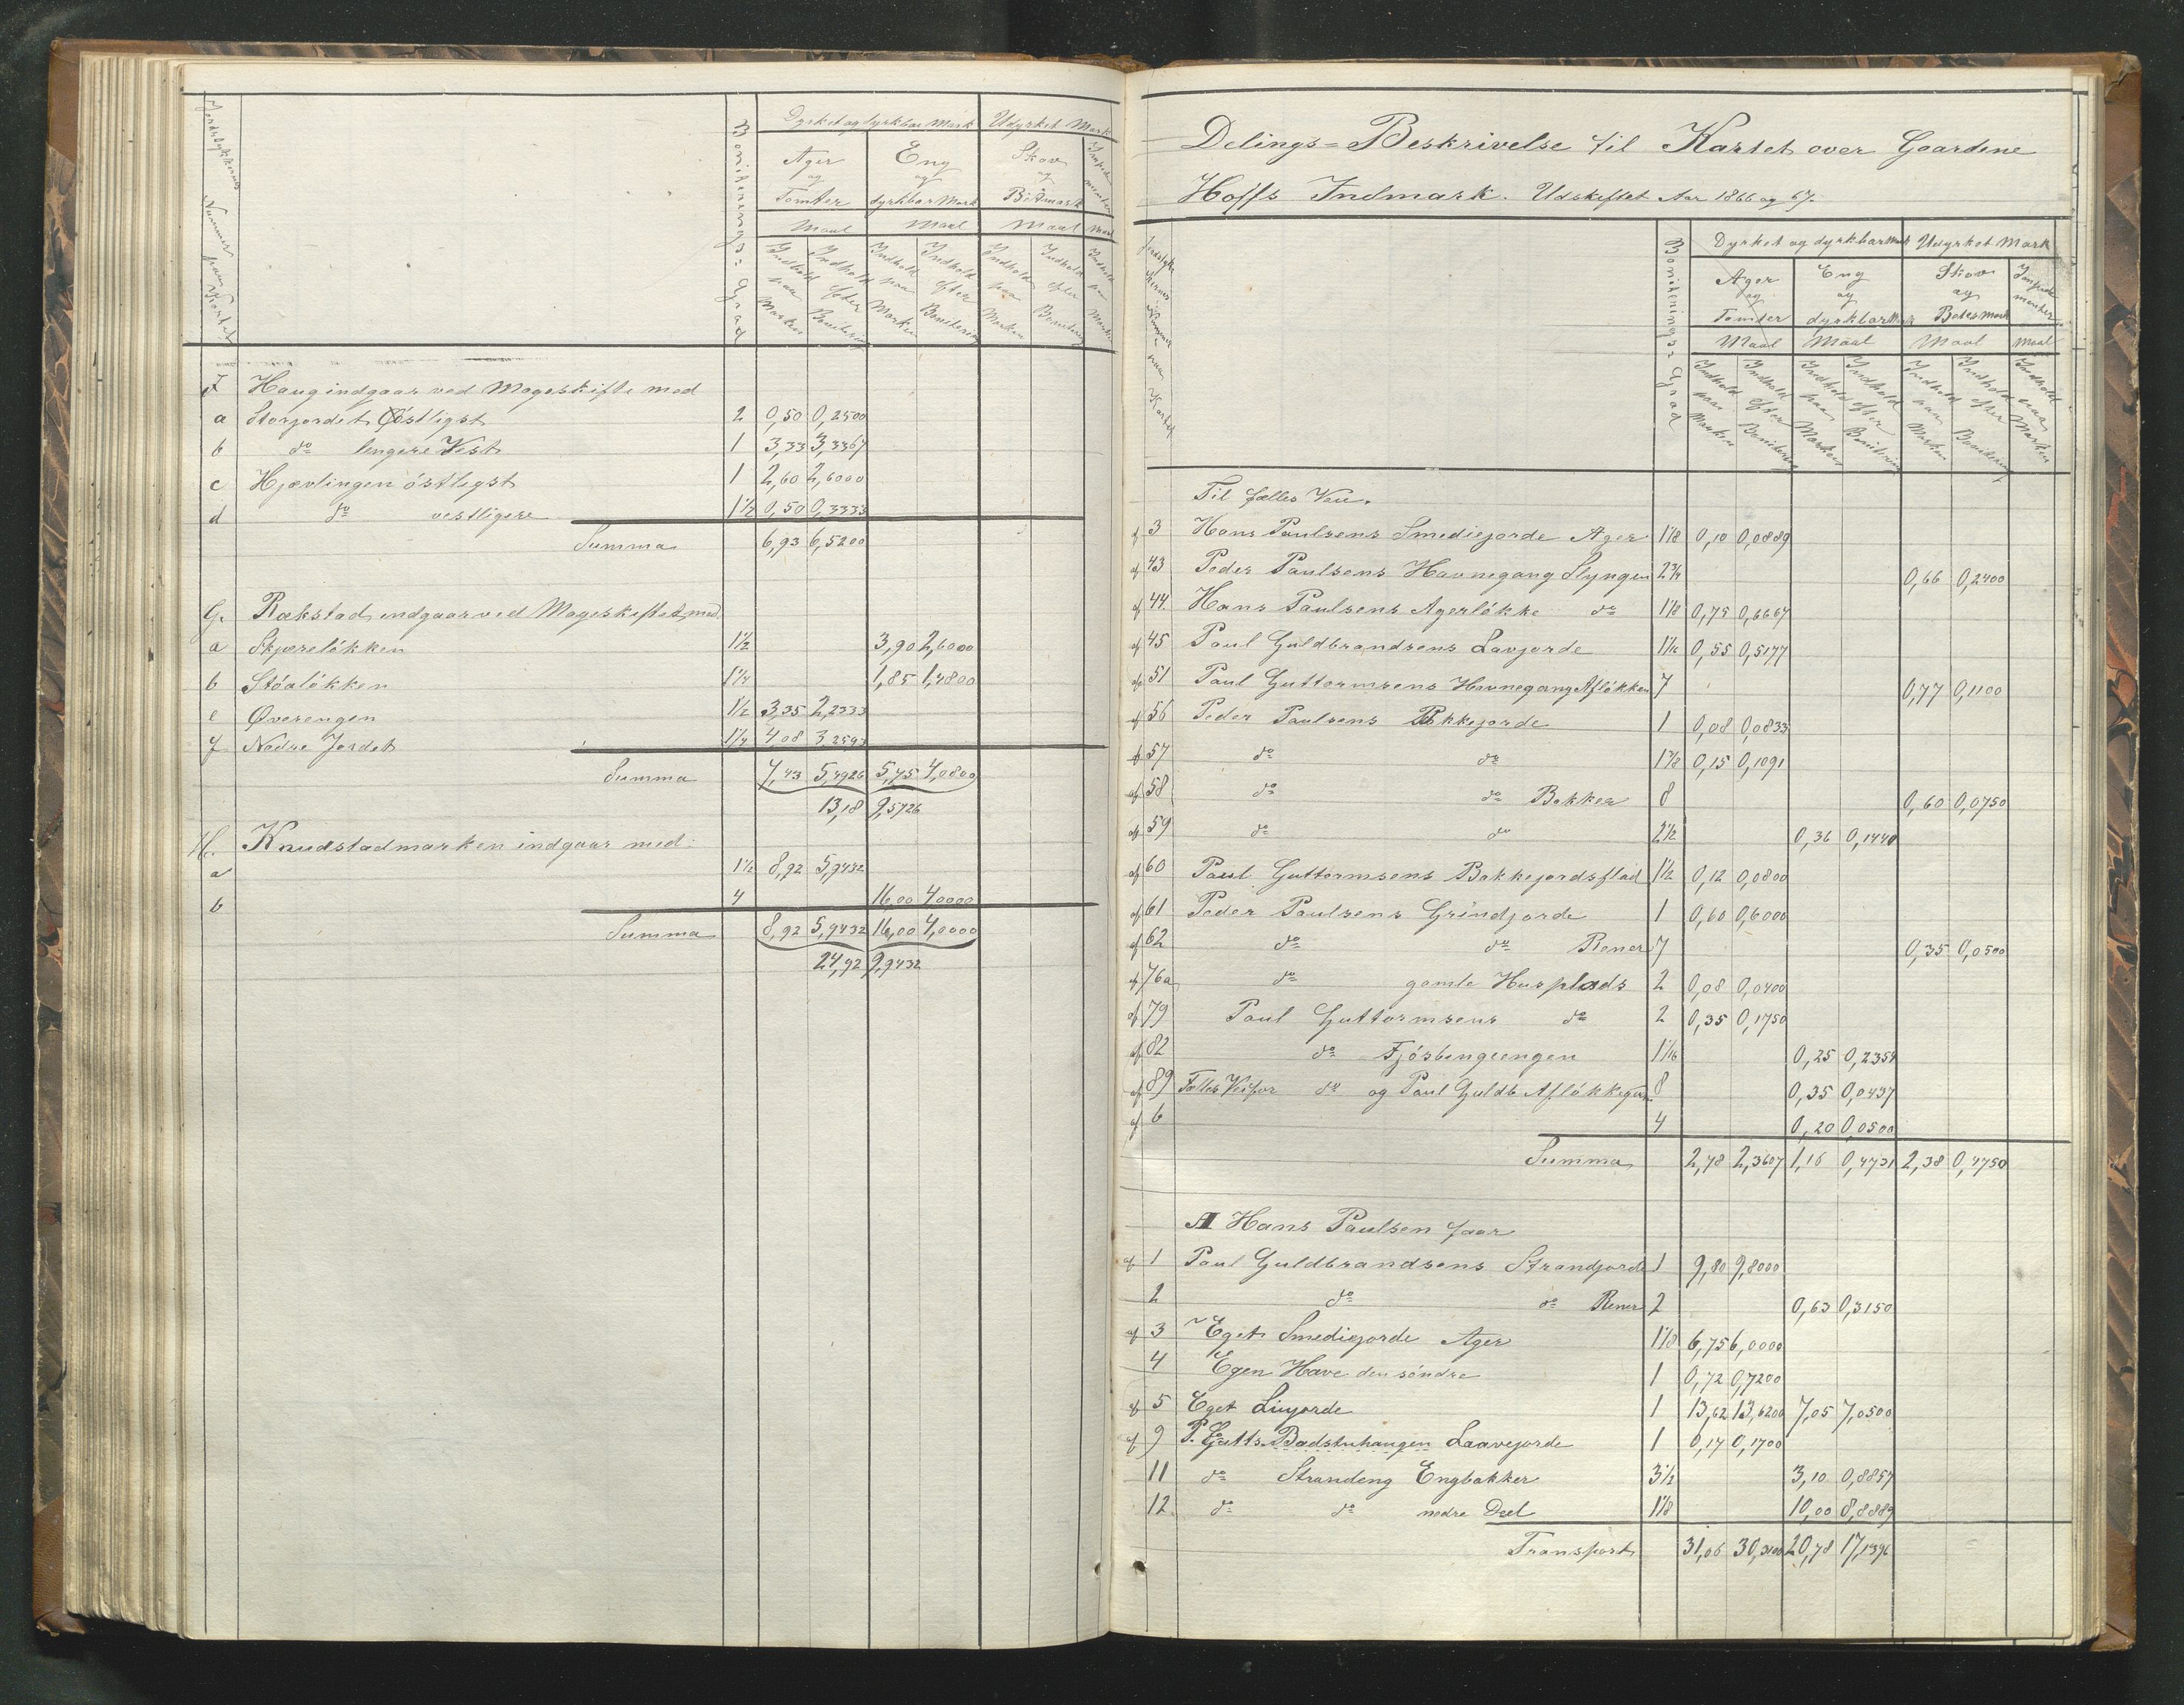 Jordstykkernes Nummer paa Kartet
Boniterings-Grad
Dyrket og dyrkbar Mark Udyrket Mark
Ager og Tomter Eng og dyrkbar Mark Skov og Beitmark Impedimenter
Maal Maal Maal Maal
Indhold paa Marken Indhold efter Bonitering Indhold paa Marken Indhold efter Bonitering Indhold paa Marken Indhold efter Bonitering Indhold paa Marken
F Haug indgaar ved Mageskifte med
a Storjordet Østligst 2 0,50 0,2500
b do lengere Vest 1 3,33 3,3367
c Hjævlingen östligst 1 2,60 2,6000
d do vestligere 1 1/2 0,50 0,3333
Summa 6,93 6,5200
G. Rækstad indgaar ved Mageskiftet med
a Skjæreløkken 1 1/2 3,90 2,6000
b Stóalókken 1 1/4 1,85 1,4800
e Øverengen 1 1/2 3,35 2,2333
f Nedre Jordet 1 1/4 4,08 3,2593
Summa 7,43 5,4926 5,75 4,0800
13,18 9,5726
H. Knudstadmarken indgaar med:
a 1 1/2 8,92 5,9432
b 4 16,00 4,0000
Summa 8,92 5,9432 16,00 4,0000
24,92 9,9432
Delings-Beskrivelse til Kartet over Gaardene
Hoffs Indmark. Udskiftet Aar 1866 og 67.
Jordstykkernes Nummer paa Kartet
Boniterings-Grad
Dyrket og dyrkbar Mark Udyrket Mark
Ager og Tomter Eng og dyrkbar Mark Skov og Betesmark Impedimenter
Maal Maal Maal Maal
Indhold paa Marken Indhold efter Bonitering Indhold paa Marken Indhold efter Bonitering Indhold paa Marken Indhold efter Bonitering Indhold paa Marken
Til fælles Vau.
af 3 Hans Paulsens Smediejorde Ager 1 1/8 0,10 0,0889
af 43 Peder Paulsens Havnegang Slyngen 2 3/4 0,66 0,2400
af 44. Hans Paulsens Agerlókke do 1 1/8 0,75 0,6667
af 45 Paul Guldbrandsens Lavjorde 1 1/16 0,55 0,5177
af 51 Paul Guttormsens Havnegang Aflókken 7 0,77 0,1100
af 56 Peder Paulsens Bakkejorde 1 0,08 0,0833
af 57 do do 1 3/8 0,15 0,1091
af 58 do do Bakker 8 0,60 0,0750
af 59 do do 2 1/2 0,36 0,1440
af 60 Paul Guttormsens Bakkejordsflad 1 1/2 0,12 0,0800
af 61 Peder Paulsens Grindjorde 1 0,60 0,6000
af 62 do do Rener 7 0,35 0,0500
af 76a do gamle Husplads 2 0,08 0,0400
af 79 Paul Guttormsens do 2 0,35 0,1750
af 82 do Fjósbingeengen 1 1/16 0,25 0,2354
af 89 Fælles Vei for do og Paul Guldb Aflókkegang 8 0,35 0,0437
af 6 4 0,20 0,0500
Summa 2,78 2,3607 1,16 0,4731 2,38 0,4750
A Hans Paulsen faar
af 1 Paul Guldbrandsens Strandjorde 1 9,80 9,8000
2 do do Rener 2 0,63 0,3150
af 3 Eget Smediejorde Ager 1 1/8 6,75 6,0000
4 Egen Have den söndre 1 0,72 0,7200
af 5 Eget Liujorde 1 13,62 13,6200 7,05 7,0500
af 9 P. Gutts. Badstuhaugen Laavejorde 1 0,17 0,1700
11 do Strandeng Engbakker 3 1/2 3,10 0,8857
12. do do nedre Deel 1 1/8 10,00 8,8889
Transport 31,06 30,3100 20,78 17,1396